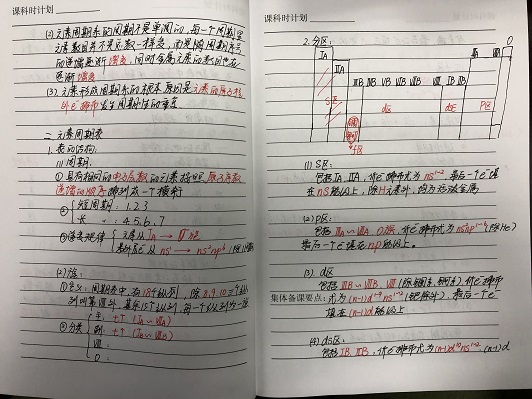 课科时计划
(2) 元素周期系的周期不是单调的，每一个周期里
元素数目并不总是一样多，而是随周期序号
的递增逐渐增多，同时金属元素的数目也在
逐渐增多
(3) 元素形成周期系的根本原因是元素的原子核
外e⁻排布发生周期性的重复
二、元素周期表
1. 表的结构
(1) 周期：
① 具有相同的电子层数的元素按照原子序数
递增的顺序排列成一个横行
② 短周期：1.2.3
长 〃：4.5.6.7
③ 递变规律 元素从 IA → 0 族
最外层e⁻从 ns¹ → ns²np⁶
(2) 族：
① 含义：周期表中，有18个纵列，除8.9.10三个纵
列叫第Ⅷ外，其余15个纵列，每一个纵列为一族
② 分类 主：七个 (ⅠA～ⅦA)
副：七个 (ⅠB～ⅦB)
Ⅷ：
0：
课科时计划
2. 分区：
0
IA
ⅡA
ⅢB ⅣB ⅤB ⅥB ⅦB Ⅷ ⅠB ⅡB
S区 d区 ds区 P区
f区
(1) S区：
包括ⅠA、ⅡA，价e⁻排布为ns¹⁻²，最后一个e⁻填
在ns能级上，除H元素外，均为活动金属
(2) p区：
包括ⅢA～ⅦA 0族，价e⁻排布式为ns²np¹⁻⁶(除He)
最后一个e⁻填在np能级上。
(3) d区
包括ⅢB～ⅦB、Ⅷ (除镧系、锕系)，价e⁻排布
集体备课要点：式为(n-1)d¹⁻⁹ns¹⁻²(钯除外)，最后一个e⁻
填在(n-1)d能级上
(4) ds区：
包括ⅠB、ⅡB，价e⁻排布式为(n-1)d¹⁰ns¹⁻² (n-1)d